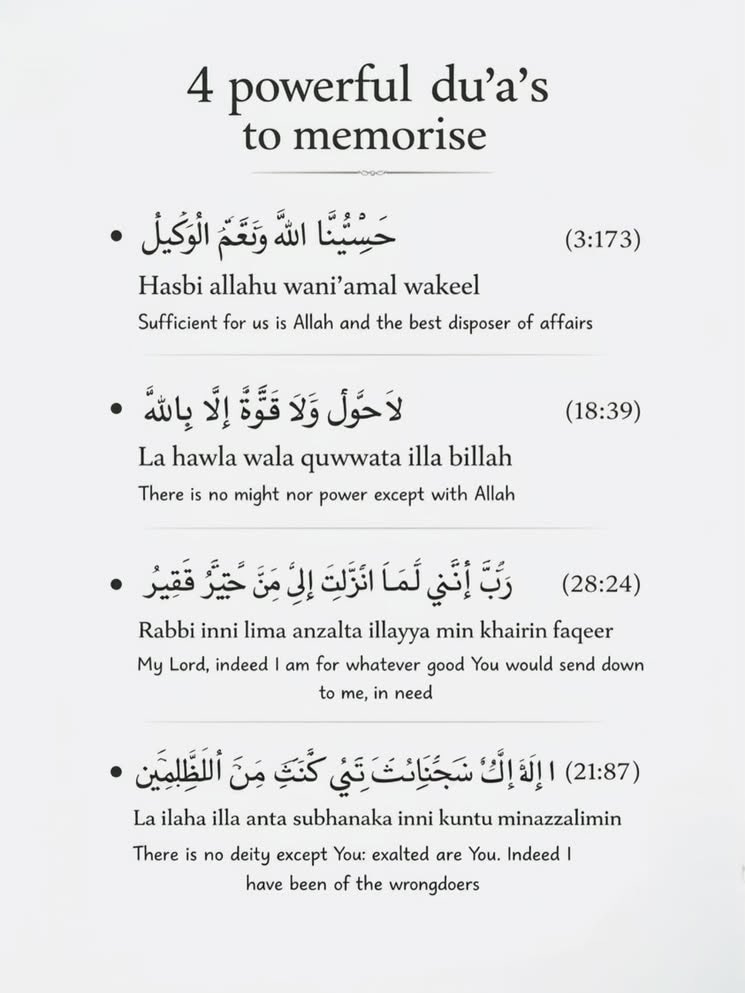 4 powerful du’a’s
to memorise
حَسْبُنَّا اللَّهَ وَنَعَّمَ الْوَكَيلُ (3:173)
Hasbi allahu wani’amal wakeel
Sufficient for us is Allah and the best disposer of affairs
لاَحوَّل وَلاَ قَوَّةً إلَّا بِاللَّهَ (18:39)
La hawla wala quwwata illa billah
There is no might nor power except with Allah
رَبَّ أنَّني لَّمَاَ انَزَّلتَ إلىَّ مَنَّ فَقِيرُ (28:24)
Rabbi inni lima anzalta illayya min khairin faqeer
My Lord, indeed I am for whatever good You would send down
to me, in need
مَنَ (21:87)
La ilaha illa anta subhanaka inni kuntu minazzalimin
There is no deity except You: exalted are You. Indeed I
have been of the wrongdoers